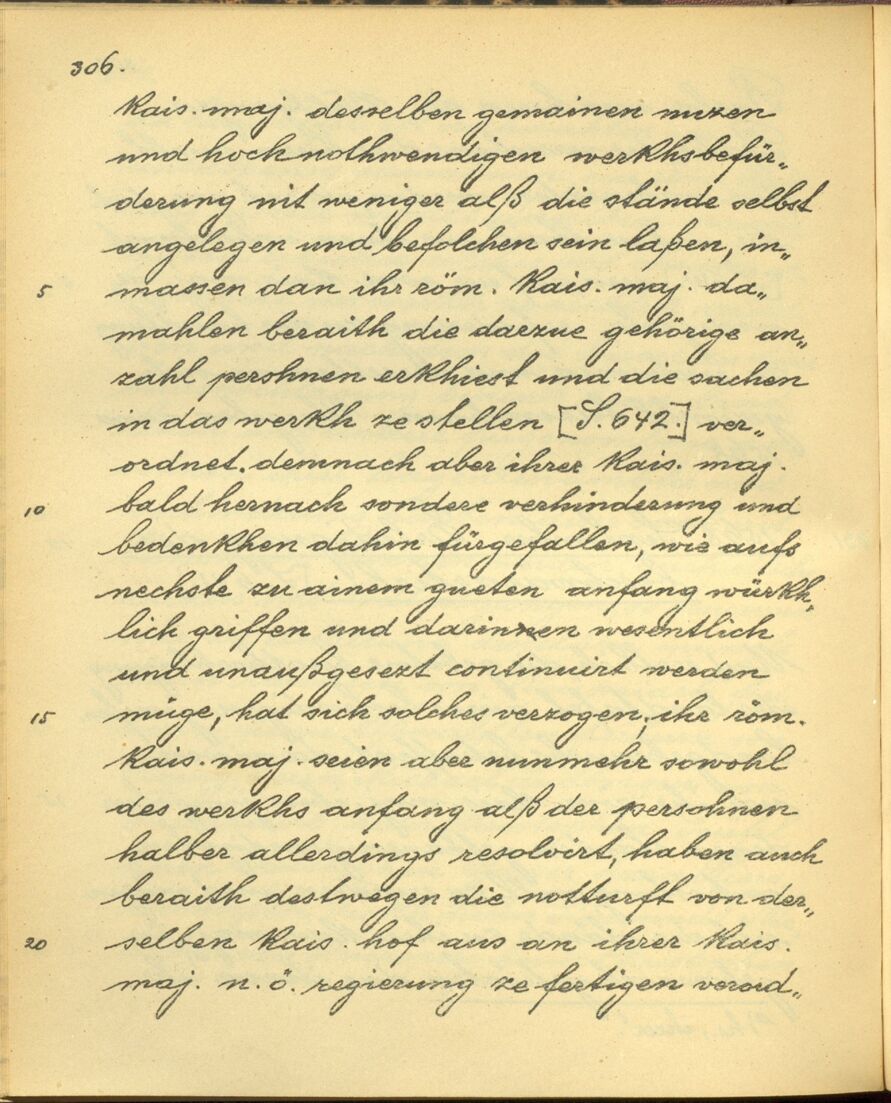 306.
kais. maj. desselben gemainen nuzen
und hochnothwendigen werkhsbefür„
derung nit weniger alß die stände selbst
angelegen und befolchen sein laßen, in„
5 massen dan ihr röm. kais. maj. da„
mahlen beraith die darzue gehörige an„
zahl persohnen erkhiest und die sachen
in das werkh ze stellen [S. 642.] ver„
ordnet. demnach aber ihrer kais. maj.
10 bald hernach sondere verhinderung und
bedenkhen dahin fürgefallen, wie aufs
nechste zu ainem gueten anfang würkh„
lich griffen und darinnen wesentlich
und unaußgesezt continuirt werden
15 müge, hat sich solches verzogen; ihr röm.
kais. maj. seien aber nunmehr sowohl
des werkhs anfang alß der persohnen
halber allerdings resolvirt, haben auch
beraith destwegen die notturft von der„
20 selben kais. hof aus an ihrer kais.
maj. n. ö. regierung ze fertigen verord„